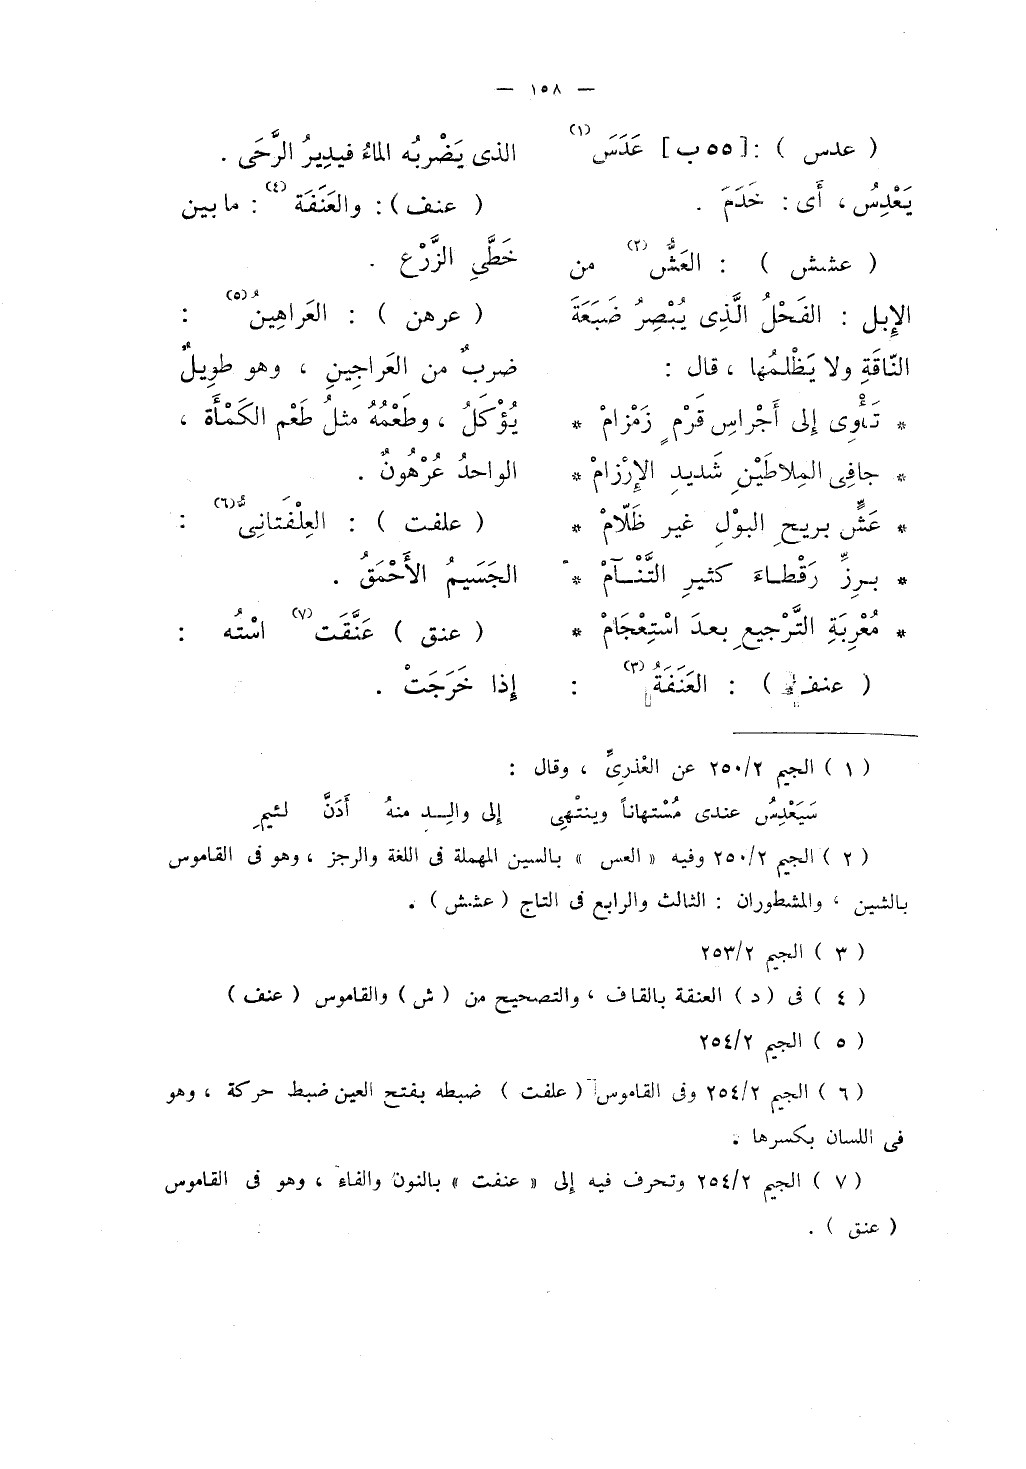 — ١٥٨ —
( عدس ) : [ ٥٥ ب ] عَدَسَ (١)
يَعْدِسُ ، أَى : خَدَمَ .
( عشش ) : العَشُّ (٢) من
الإبل : الفَحْلُ الَّذِى يُبْصِرُ ضَبَعَةَ
النَّاقَةِ ولا يَظْلمُها ، قال :
* تَأْوِى إلى أَجْراسِ قَرْمٍ زَمْزامْ *
* جافِى المِلاطَيْنِ شَديدِ الإرْزامْ *
* عَشٍّ بريحِ البوْلِ غير ظَلّامْ *
* برِزِّ رَقْطاءَ كثيرِ التَّنْآمْ *
* مُعْرِبَةِ التَّرْجيعِ بعدَ اسْتِعْجَامْ *
( عنف ) : العَنَفَةُ (٣) :
الذى يَضْربُه الماءُ فيدِيرُ الرَّحَى .
( عنف ) : والعَنَفَة (٤) : ما بين
خَطَّىِ الزَّرْع .
( عرهن ) : العَراهِينُ (٥) :
ضربٌ من العَراجِينِ ، وهو طوِيلٌ
يُؤْكلُ ، وطَعْمُهُ مثلُ طَعْم الكَمْأَة ،
الواحدُ عُرْهُونٌ .
( علفت ) : العِلْفَتانِىُّ (٦) :
الجَسَيمُ الأَحْمَقُ .
( عنق ) عَنَّقَت (٧) اسْتُه :
إذا خَرَجَتْ .
( ١ ) الجيم ٢٥٠/٢ عن العْذرىِّ ، وقال :
سَيَعْدِسُ عندى مُسْتهاناً وينتْهِى إلى والِدٍ منهُ أَدَنَّ لئيمِ
( ٢ ) الجيم ٢٥٠/٢ وفيه « العس » بالسين المهملة فى اللغة والرجز ، وهو فى القاموس
بالشين ، والمشطوران : الثالث والرابع فى التاج ( عشش ) .
( ٣ ) الجيم ٢٥٣/٢
( ٤ ) فى ( د ) العنقة بالقاف ، والتصحيح من ( ش ) والقاموس ( عنف )
( ٥ ) الجيم ٢٥٤/٢
( ٦ ) الجيم ٢٥٤/٢ وفى القاموس ( علفت ) ضبطه بفتح العين ضبط حركة ، وهو
فى اللسان بكسرها .
( ٧ ) الجيم ٢٥٤/٢ وتحرف فيه إلى « عنفت » بالنون والفاء ، وهو فى القاموس
( عنق ) .